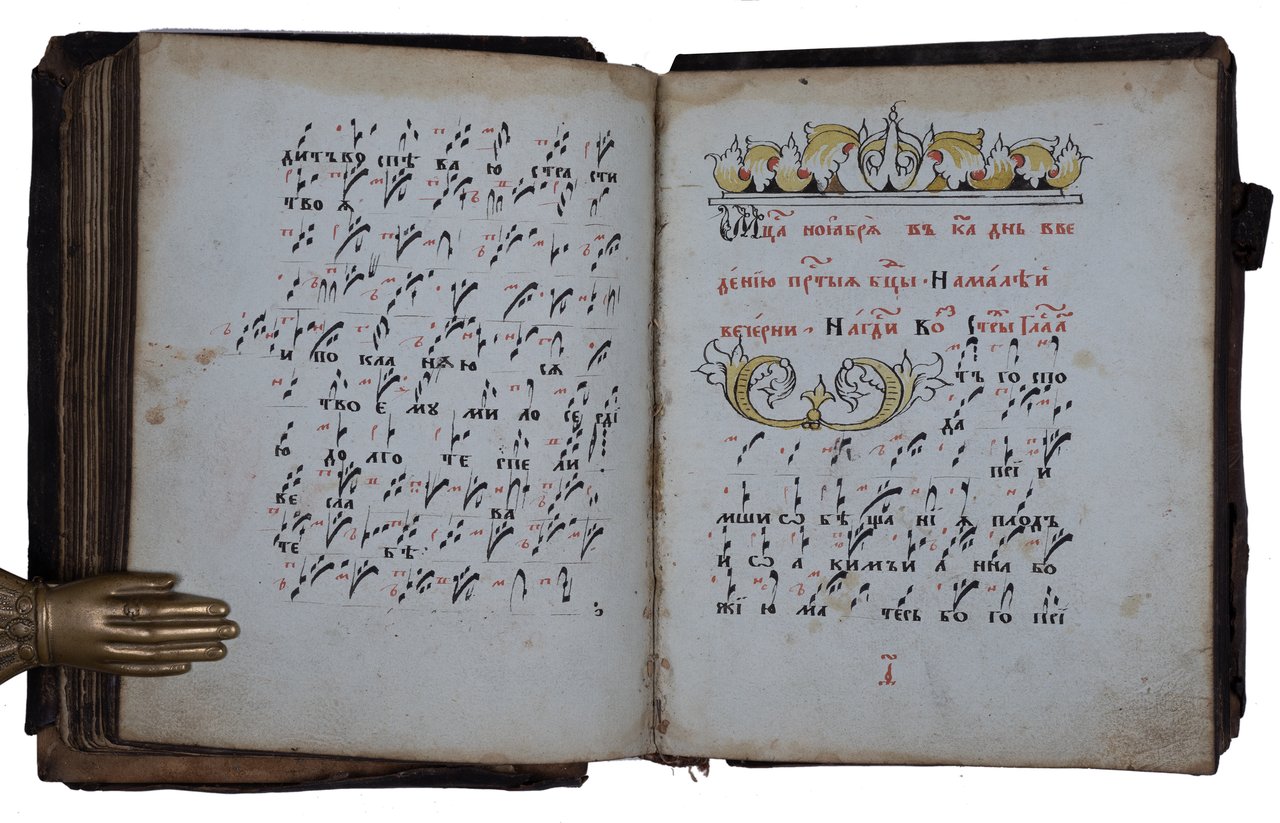 дитъ во спѣ ва ю стра сти
тво ѧ
и по кла нѧю сѧ
тво е му ми ло се рді
ю до лго те рпе ли
ве сла ва
те бѣ
Мцⷭа ноіабрѧ въ к҃а днь вве
де́нїю прⷭтыѧ бцⷣы · На ма́лѣй
вече́рни · На гдⷭи воⷥ
тъ го спо
да
прїи
мши сѡ бѣ ща нї ѧ плодъ
и сѡ а кимъ и а нна бо
жїю ма терь бо го прї